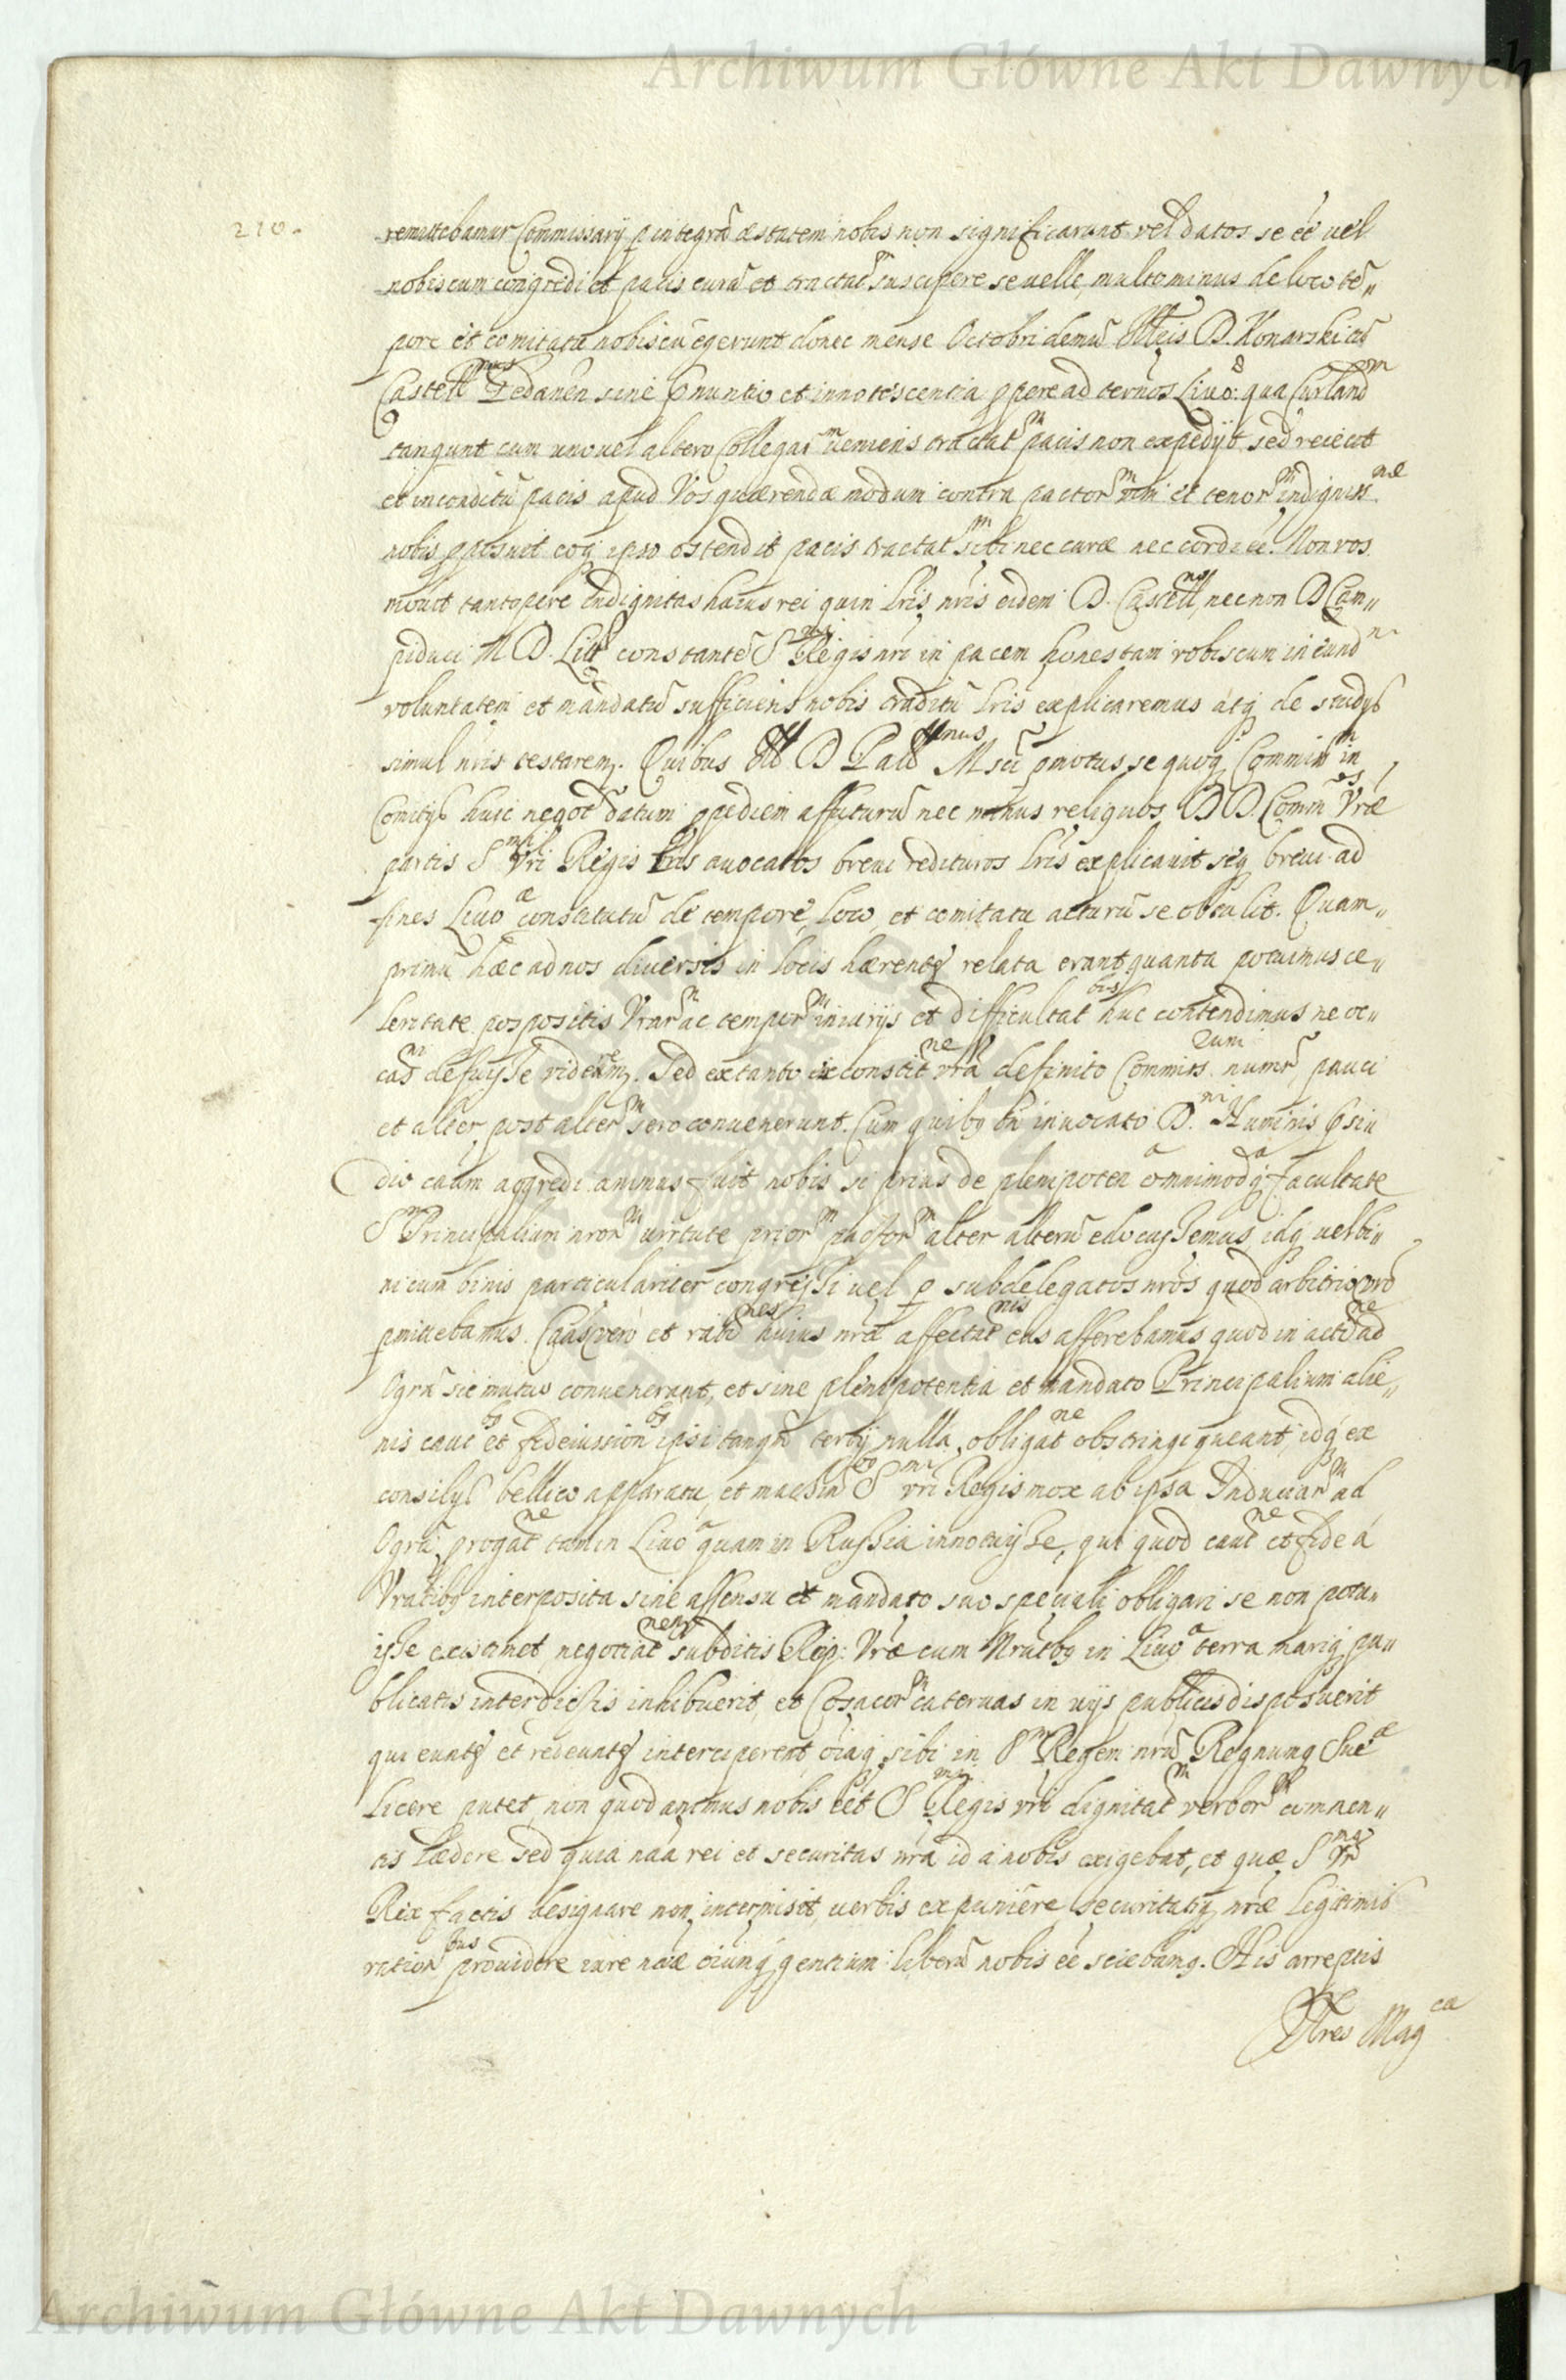 Archiwum Główne Akt Dawnych
210.
remittebamur Commissarij p integrã æstatem nobis non significarunt vel datos se eẽ vel
nobiscum congredi et pacis curã et tractatᵘᵐ suscipere se velle, multo minus de loco tẽ„
pore et comitatu nobiscũ egerunt donec mense Octobri demũ D. Konarski
Castellⁿᵘˢ sine et innotescentia ppere ad terños Livoᵃᵉ: qua Curlandᵐ
tangunt cum uno vel altero Collegarᵐ veniens tractatᵐ pacis non expedijt sed reiecit
et inconditũ pacis apud Vos quærendæ modum contra pactorᵐ vim et tenorᵐ indignissᵐᵉ
nobis pposuit eoq ipso ostendit pacis tractatᵐ sibi nec curæ nec cordi eẽ. Non vos
movit tantopere indignitas huius rei quin Lr̃is nr̃is eidem D. Castellⁿᵒ, nec non D. Cam„
piduci M. D. Litt constantẽ Sᵐⁱ Regis nr̃i in pacem honestam vobiscum ineundᵐ
voluntatem et mandatũ sufficiens nobis traditũ Lr̃is explicaremus atq de studijs
simul nr̃is testaremꝫ. Quibus D Palᵗⁱⁿᵘˢ pmotus se quoq Commissᵐ in
Comitijs huic negot datum ppediem affuturũ nec minus reliquos D D. Commᵒˢ Vr̃æ
partis Sᵐⁱ Vr̃i Regis Lr̃is avocatos brevi redituros Lr̃is explicavit seq brevi ad
fines Livoᵃᵉ constitutũ de tempore, loco, et comitatu acturũ se obtulit. Quam„
primũ hæc ad nos diversis in locis hærentes relata erant quanta potuimus ce„
leritate pospositis Vrarᵐ ac temporᵐ iniurijs et difficultatᵇᵘˢ huc contendimus ne oc„
casᵐ defuisse videamꝫ. Sed ex tanto ex constitⁿᵉ vr̃a definito Commissᵃʳᵘᵐ numerõ, pauci
et alter post alterᵐ sero convenerunt. Cum quibꝫ tñ invocato Dⁿⁱ Numinis psi„
dio caũm aggredi animus fuit nobis si prius de plenipotenᵃ omnimodᵃq facultate
Sᵐ Principalium nrorᵐ virtute priorᵐ pactorᵐ alter alterũ edocuissemus, idq vel bi„
ni cum binis particulariter congressi vel p subdelegatos nr̃os quod arbitrio vrõ
pmittebamus. Caũs vero et ratioⁿᵉˢ huius nr̃æ affectatⁿⁱˢ eas afferebamus quod in actioⁿᵉ ad
Ogrã sic mutuo convenerant, et sine plenipotentia et mandato Principalium alie„
nis cautᵇˢ et fideiussionᵇˢ ipsi tanqũ tertij nulla obligatⁿᵉ obstringi queant, idq ex
consilijs bellico apparatu, et machinᵇˢ Sᵐⁱ vr̃i Regis mox ab ipsa Induciarᵐ ad
Ogrã progatⁿᵉ tam in Livoᵃ quam in Russia innotuisse, qui quod cautⁿᵉ et fide á
Vratibꝫ interposita sine assensu et mandato suo speciali obligari se non potu„
isse existimet, negotiatⁿᵉᵐ subditis Reip: Vr̃æ cum Nratibꝫ in Livoᵃ terra mariq pu„
blicatis interdictis inhibuerit, et Cosacorᵐ catervas in vijs publicis disposuerit
qui euntes et redeuntes interciperent, oĩaq sibi in Sᵐ Regem nrũ Regnumq Sueᵃᵉ
licere putet, non quod animus nobis eẽt Sᵐⁱ Regis vr̃i dignitatᵐ verborᵐ commen„
tis lædere sed quia nãa rei et securitas nr̃a id a nobis exigebat, et quæ Sᵐᵘˢ Vr̃
Rex factis designare non intermisit, verbis expromere, securitatiq nr̃æ legitimis
rationᵇᵘˢ providere iure náæ oĩumq gentium liberũ nobis eẽ sciebamꝫ. His arreptis
Vr̃es Magᶜᵃ
Archiwum Główne Akt Dawnych